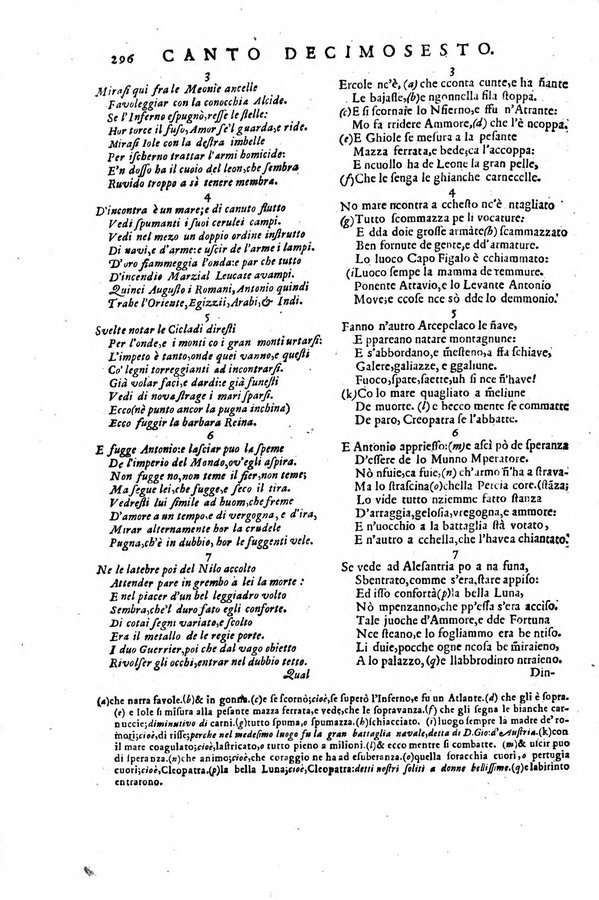 296 CANTO DECIMOSESTO.
3
Mirasi qui fra le Meonie ancelle
Favoleggiar con la conocchia Alcide.
Se l'Inferno espugnò, resse le stelle:
Hor torce il fuso, Amor se'l guarda, e ride.
Mirasi Iole con la destra imbelle
Per ischerno trattar l'armi homicide:
E'n dosso ha il cuoio del leon, che sembra
Ruvido troppo a sì tenere membra.
4
D'incontra è un mare; e di canuto flutto
Vedi spumanti i suoi cerulei campi.
Vedi nel mezo un doppio ordine instrutto
Di navi, e d'arme: e uscir de l'arme i lampi.
D'oro fiammeggia l'onda: e par che tutto
D'incendio Marzial Leucate avampi.
Quinci Augusto i Romani, Antonio quindi
Trahe l'Oriente, Egizzii, Arabi, & Indi.
5
Svelte notar le Cicladi diresti
Per l'onde, e i monti co i gran monti urtarsi:
L'impeto è tanto, onde quei vanno, e questi
Co' legni torreggianti ad incontrarsi.
Già volar faci, e dardi: e già funesti
Vedi di nova strage i mari sparsi.
Ecco (nè punto ancor la pugna inchina)
Ecco fuggir la barbara Reina.
6
E fugge Antonio: e lasciar puo la speme
De l'imperio del Mondo, ov'egli aspira.
Non fugge no, non teme il fier, non teme;
Ma segue lei, che fugge, e seco il tira.
Vedresti lui simile ad huom, che freme
D'amore a un tempo, e di vergogna, e d'ira,
Mirar alternamente hor la crudele
Pugna, ch'è in dubbio, hor le fuggenti vele.
7
Ne le latebre poi del Nilo accolto
Attender pare in grembo a lei la morte:
E nel piacer d'un bel leggiadro volto
Sembra, che'l duro fato egli conforte.
Di cotai segni variato, e scolto
Era il metallo de le regie porte.
I duo Guerrier, poi che dal vago obietto
Rivolser gli occhi, entrar nel dubbio tetto.
Qual
3
Ercole nc'è, (a) che cconta cunte, e ha ñante
Le bajasse, (b) e ngonnella fila stoppa.
(c) E si scornaje lo Nfierno, e ffu n'Atrante:
Mo fa rridere Ammore, (d) che l'è ncoppa.
(e) E Ghiole se mesura a la pesante
Mazza ferrata, e bede, ca l'accoppa:
E ncuollo ha de Leone la gran pelle,
(f) Che le senga le ghianche carnecelle.
4
No mare ncontra a cchesto nc'è ntagliato
(g) Tutto scommazza pe li vocature:
E dda doie grosse armate (h) scammazzato
Ben fornute de gente, e d'armature.
Lo luoco Capo Figalo è cchiammato:
(i) Luoco sempe la mamma de remmure.
Ponente Attavio, e lo Levante Antonio
Move; e ccose nce sò dde lo demmonio.
5
Fanno n'autro Arcepelaco le ñave,
E ppareano natare montagne.
E s'abbordano, e mesteno, a ffa schiave,
Galere, galiazze, e ggaliune.
Fuoco, spate, saette, uh si nce n'have!
(k) Co lo mare quagliato a meliune
De muorte. (l) e becco mente se commatte
De paro, Cropeatra se le sbatte.
6
E Antonio appriesso: (m) e ascì pò de speranza
D'essere de lo Munno Mperatore.
Nò nfuie, ca fuie, (n) ch'armo ñ'ha a strava.
Ma lo strascina (o) chella Percia core. (stãza;
Lo vide tutto nziemme farte stanza
D'arraggia, gelosia, vregogna, e ammore:
E n'uocchio a la battaglia stà votato,
E n'autro a cchella, che l'havea chiantato.
7
Se vede ad Alesantria po a na funa,
Sbentrato, commme s'era, stare appiso:
Ed isso confortà (p) la bella Luna,
Nò mpenzanno, che pp'essa s'era acciso.
Tale juoche d'Ammore, e dde Fortuna
Nce stanno, e lo fogliammo era be ntiso.
Li duie, pocchene ascaje be mmiraieno,
A lo palazzo, (q) e llabbrodinto ntraieno.
Din-
(a) che narra favole. (b) & in gonna. (c) e se scornò; cioè, se superò l'Inferno, e fu un Atlante. (d) che gli è sopra.
(e) e Iole si misura alla pesante mazza ferrata, e vede, che le sopravanza. (f) che gli segna le bianche car-
nuccie; diminutivo di carni. (g) tutto spuma, o spumazza. (h) schiacciato. (i) luogo sempre la madre de' ro-
mori; cioè, di risse; perche nel medesimo luogo fu la gran battaglia navale, detta di D. Gio: d'Austria. (k) con
il mare coagulato; cioè, lastricato, o tutto pieno a milioni. (l) & ecco mentre si combatte. (m) & uscir puo
di speranza. (n) che coraggio ne ha ad esuberanza. (o) quella foracchia cuori, o pertugia
cuori; cioè, Cleopatra. (p) la bella Luna; cioè, Cleopatra: detti nostri soliti a donne bellissime. (q) e labirinto
entrarono.